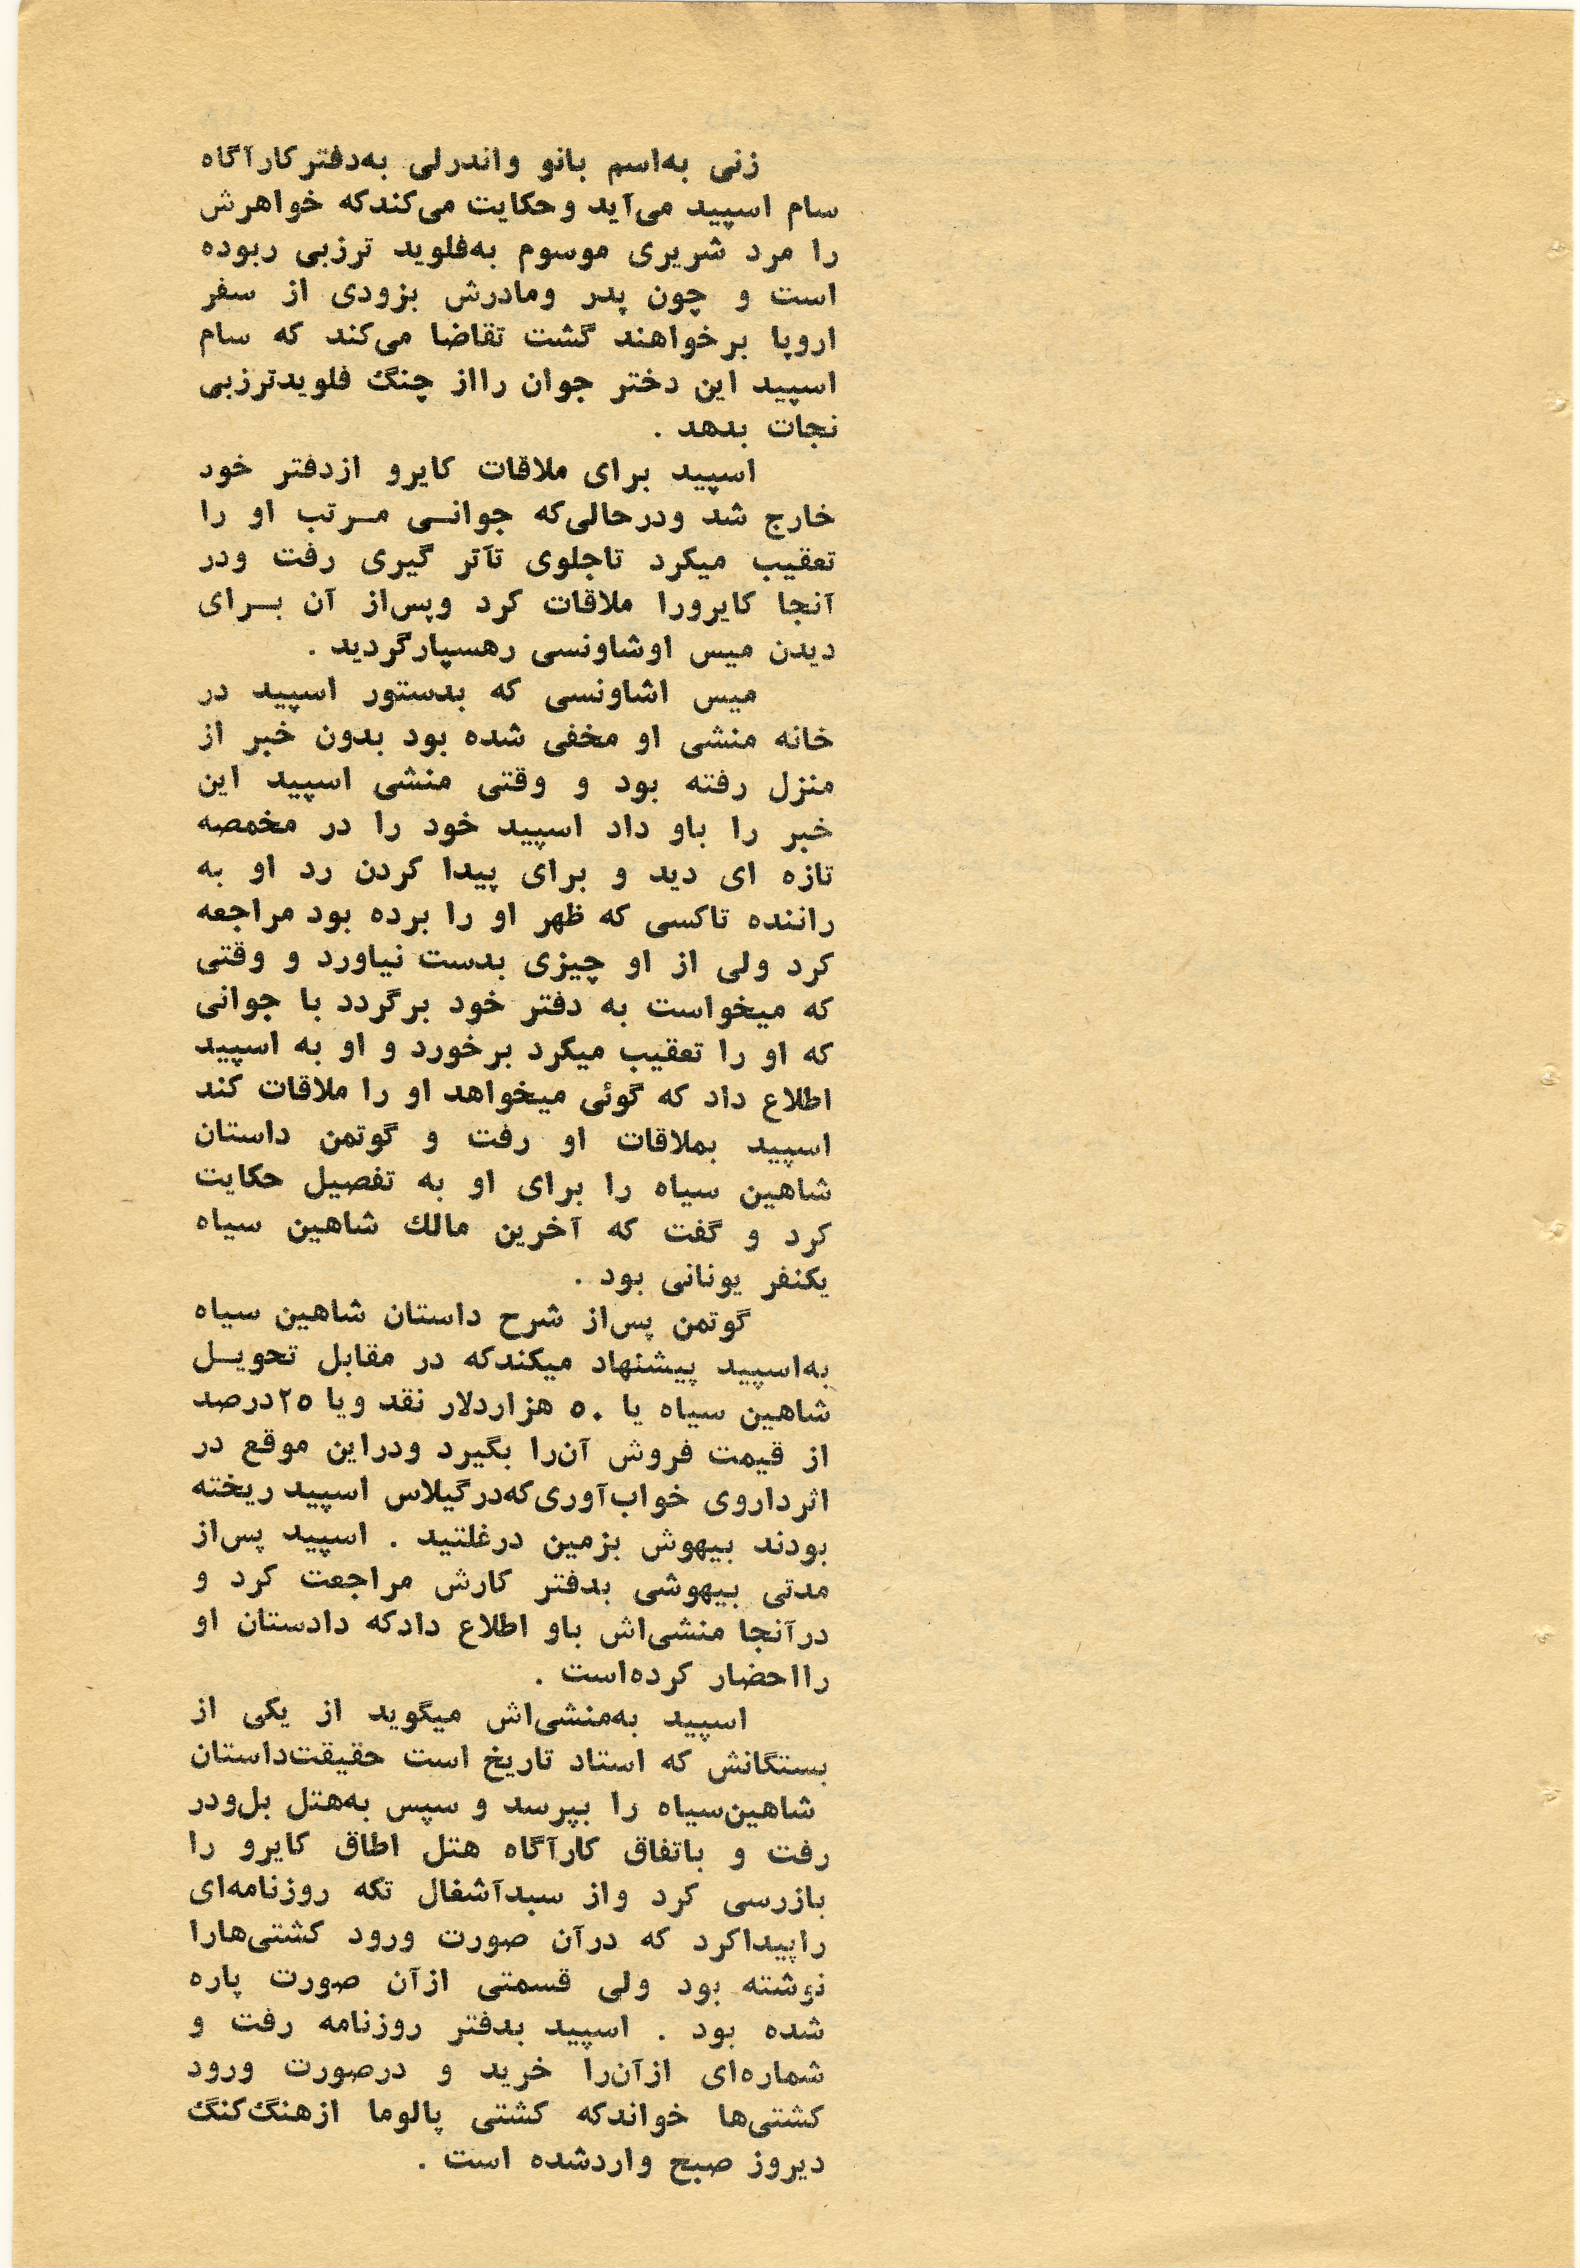 زنی به‌اسم بانو واندرلی به‌دفتر کارآگاه
سام اسپید می‌آید و حکایت می‌کند که خواهرش
را مرد شریری موسوم به‌فلوید ترزبی ربوده
است و چون پدر و مادرش بزودی از سفر
اروپا برخواهند گشت تقاضا می‌کند که سام
اسپید این دختر جوان را از چنگ فلوید ترزبی
نجات بدهد .
اسپید برای ملاقات کایرو از دفتر خود
خارج شد و در حالی‌که جوانـی مـرتب او را
تعقیب میکرد تا جلوی تآتر گیری رفت و در
آنجا کایرو را ملاقات کرد و پس‌از آن بـرای
دیدن میس اوشاونسی رهسپار گردید .
میس اشاونسی که بدستور اسپید در
خانه منشی او مخفی شده بود بدون خبر از
منزل رفته بود و وقتی منشی اسپید این
خبر را باو داد اسپید خود را در مخمصه
تازه ای دید و برای پیدا کردن رد او به
راننده تاکسی که ظهر او را برده بود مراجعه
کرد ولی از او چیزی بدست نیاورد و وقتی
که میخواست به دفتر خود برگردد با جوانی
که او را تعقیب میکرد برخورد و او به اسپید
اطلاع داد که گوئی میخواهد او را ملاقات کند
اسپید بملاقات او رفت و گوتمن داستان
شاهین سیاه را برای او به تفصیل حکایت
کرد و گفت که آخرین مالك شاهین سیاه
یکنفر یونانی بود .
گوتمن پس‌از شرح داستان شاهین سیاه
به‌اسپید پیشنهاد میکند که در مقابل تحویـل
شاهین سیاه یا ۵۰ هزار دلار نقد و یا ۲۵ درصد
از قیمت فروش آن‌را بگیرد و در این موقع در
اثر داروی خواب‌آوری که در گیلاس اسپید ریخته
بودند بیهوش بزمین درغلتید . اسپید پس‌از
مدتی بیهوشی بدفتر کارش مراجعت کرد و
در آنجا منشی‌اش باو اطلاع داد که دادستان او
را احضار کرده‌است .
اسپید به‌منشی‌اش میگوید از یکی از
بستگانش که استاد تاریخ است حقیقت داستان
شاهین‌سیاه را بپرسد و سپس به‌هتل بل‌ودر
رفت و باتفاق کارآگاه هتل اطاق کایرو را
بازرسی کرد و از سبد آشفال تکه روزنامه‌ای
را پیدا کرد که در آن صورت ورود کشتی‌ها را
نوشته بود ولی قسمتی از آن صورت پاره
شده بود . اسپید بدفتر روزنامه رفت و
شماره‌ای از آن‌را خرید و در صورت ورود
کشتی‌ها خواند که کشتی پالوما از هنگ‌کنگ
دیروز صبح وارد شده است .